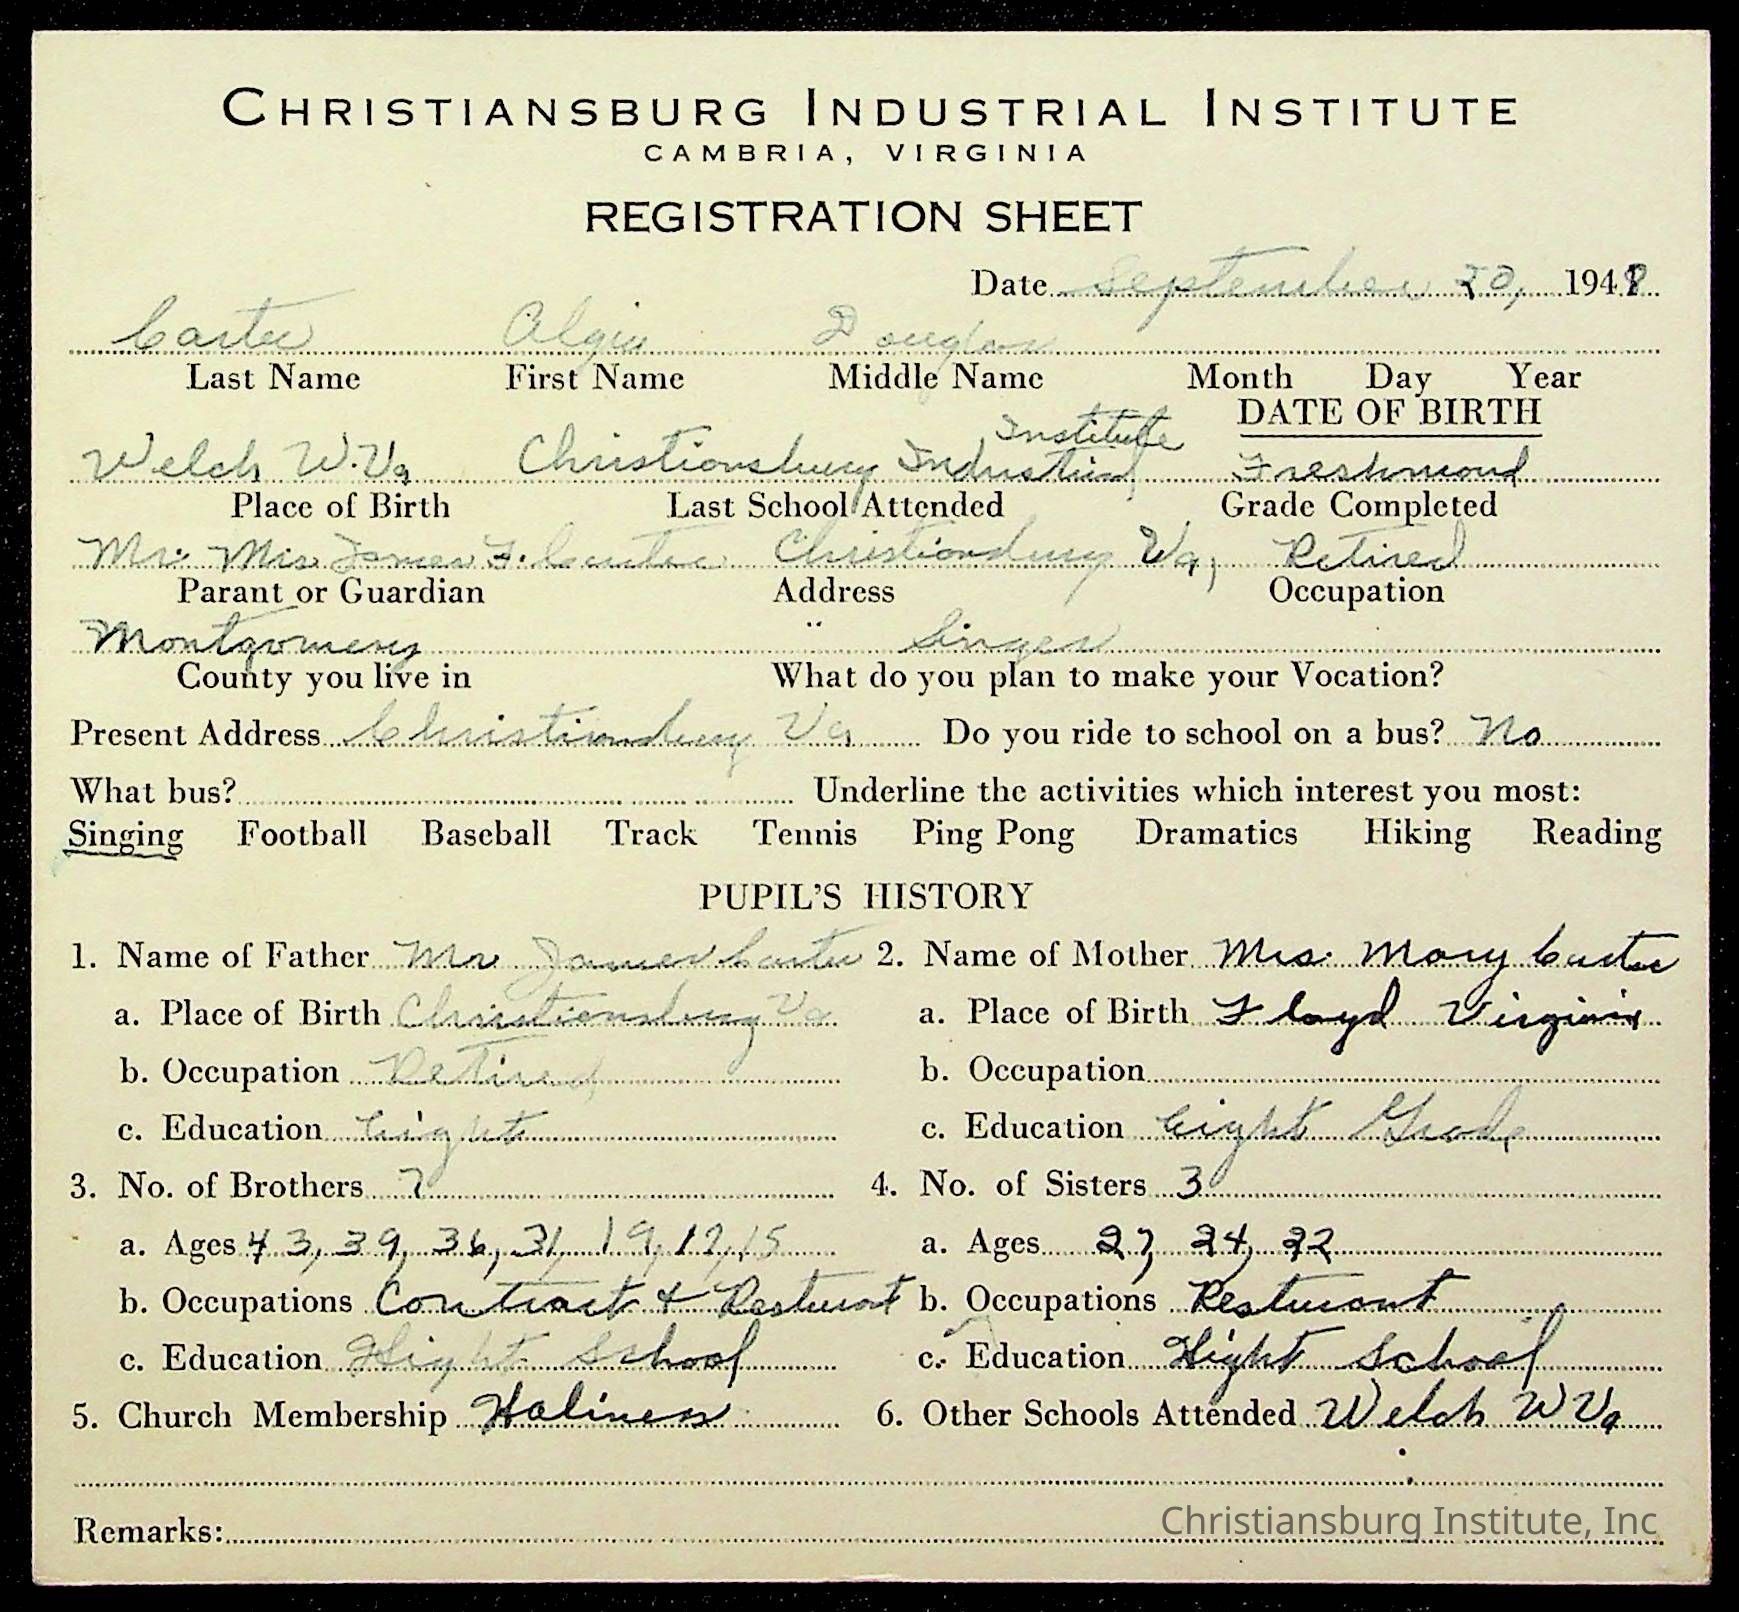 CHRISTIANSBURG INDUSTRIAL INSTITUTE
CAMBRIA, VIRGINIA
REGISTRATION SHEET
Date September 20, 1948
Carter Algie Douglas
Last Name First Name Middle Name Month Day Year
DATE OF BIRTH
Institute
Welch W.Va Christionsburg Industrial Freshmond
Place of Birth Last School Attended Grade Completed
Mr. Mrs. James F. Carter Christionsburg Va, Retired
Parant or Guardian Address Occupation
Montgomery Singer
County you live in What do you plan to make your Vocation?
Present Address Christionsburg Va Do you ride to school on a bus? No
What bus? Underline the activities which interest you most:
Singing Football Baseball Track Tennis Ping Pong Dramatics Hiking Reading
PUPIL'S HISTORY
1. Name of Father Mr James Carter 2. Name of Mother Mrs. Mary Carter
a. Place of Birth Christionsburg Va a. Place of Birth Floyd Virginia
b. Occupation Retired b. Occupation
c. Education Eight c. Education Eight Grade
3. No. of Brothers 7 4. No. of Sisters 3
a. Ages 43, 39, 36, 31, 19, 17, 15 a. Ages 27, 24, 22
b. Occupations Contract & Resturant b. Occupations Resturant
c. Education Hight School c. Education Hight School
5. Church Membership Holiness 6. Other Schools Attended Welch W Va
Remarks:
Christiansburg Institute, Inc